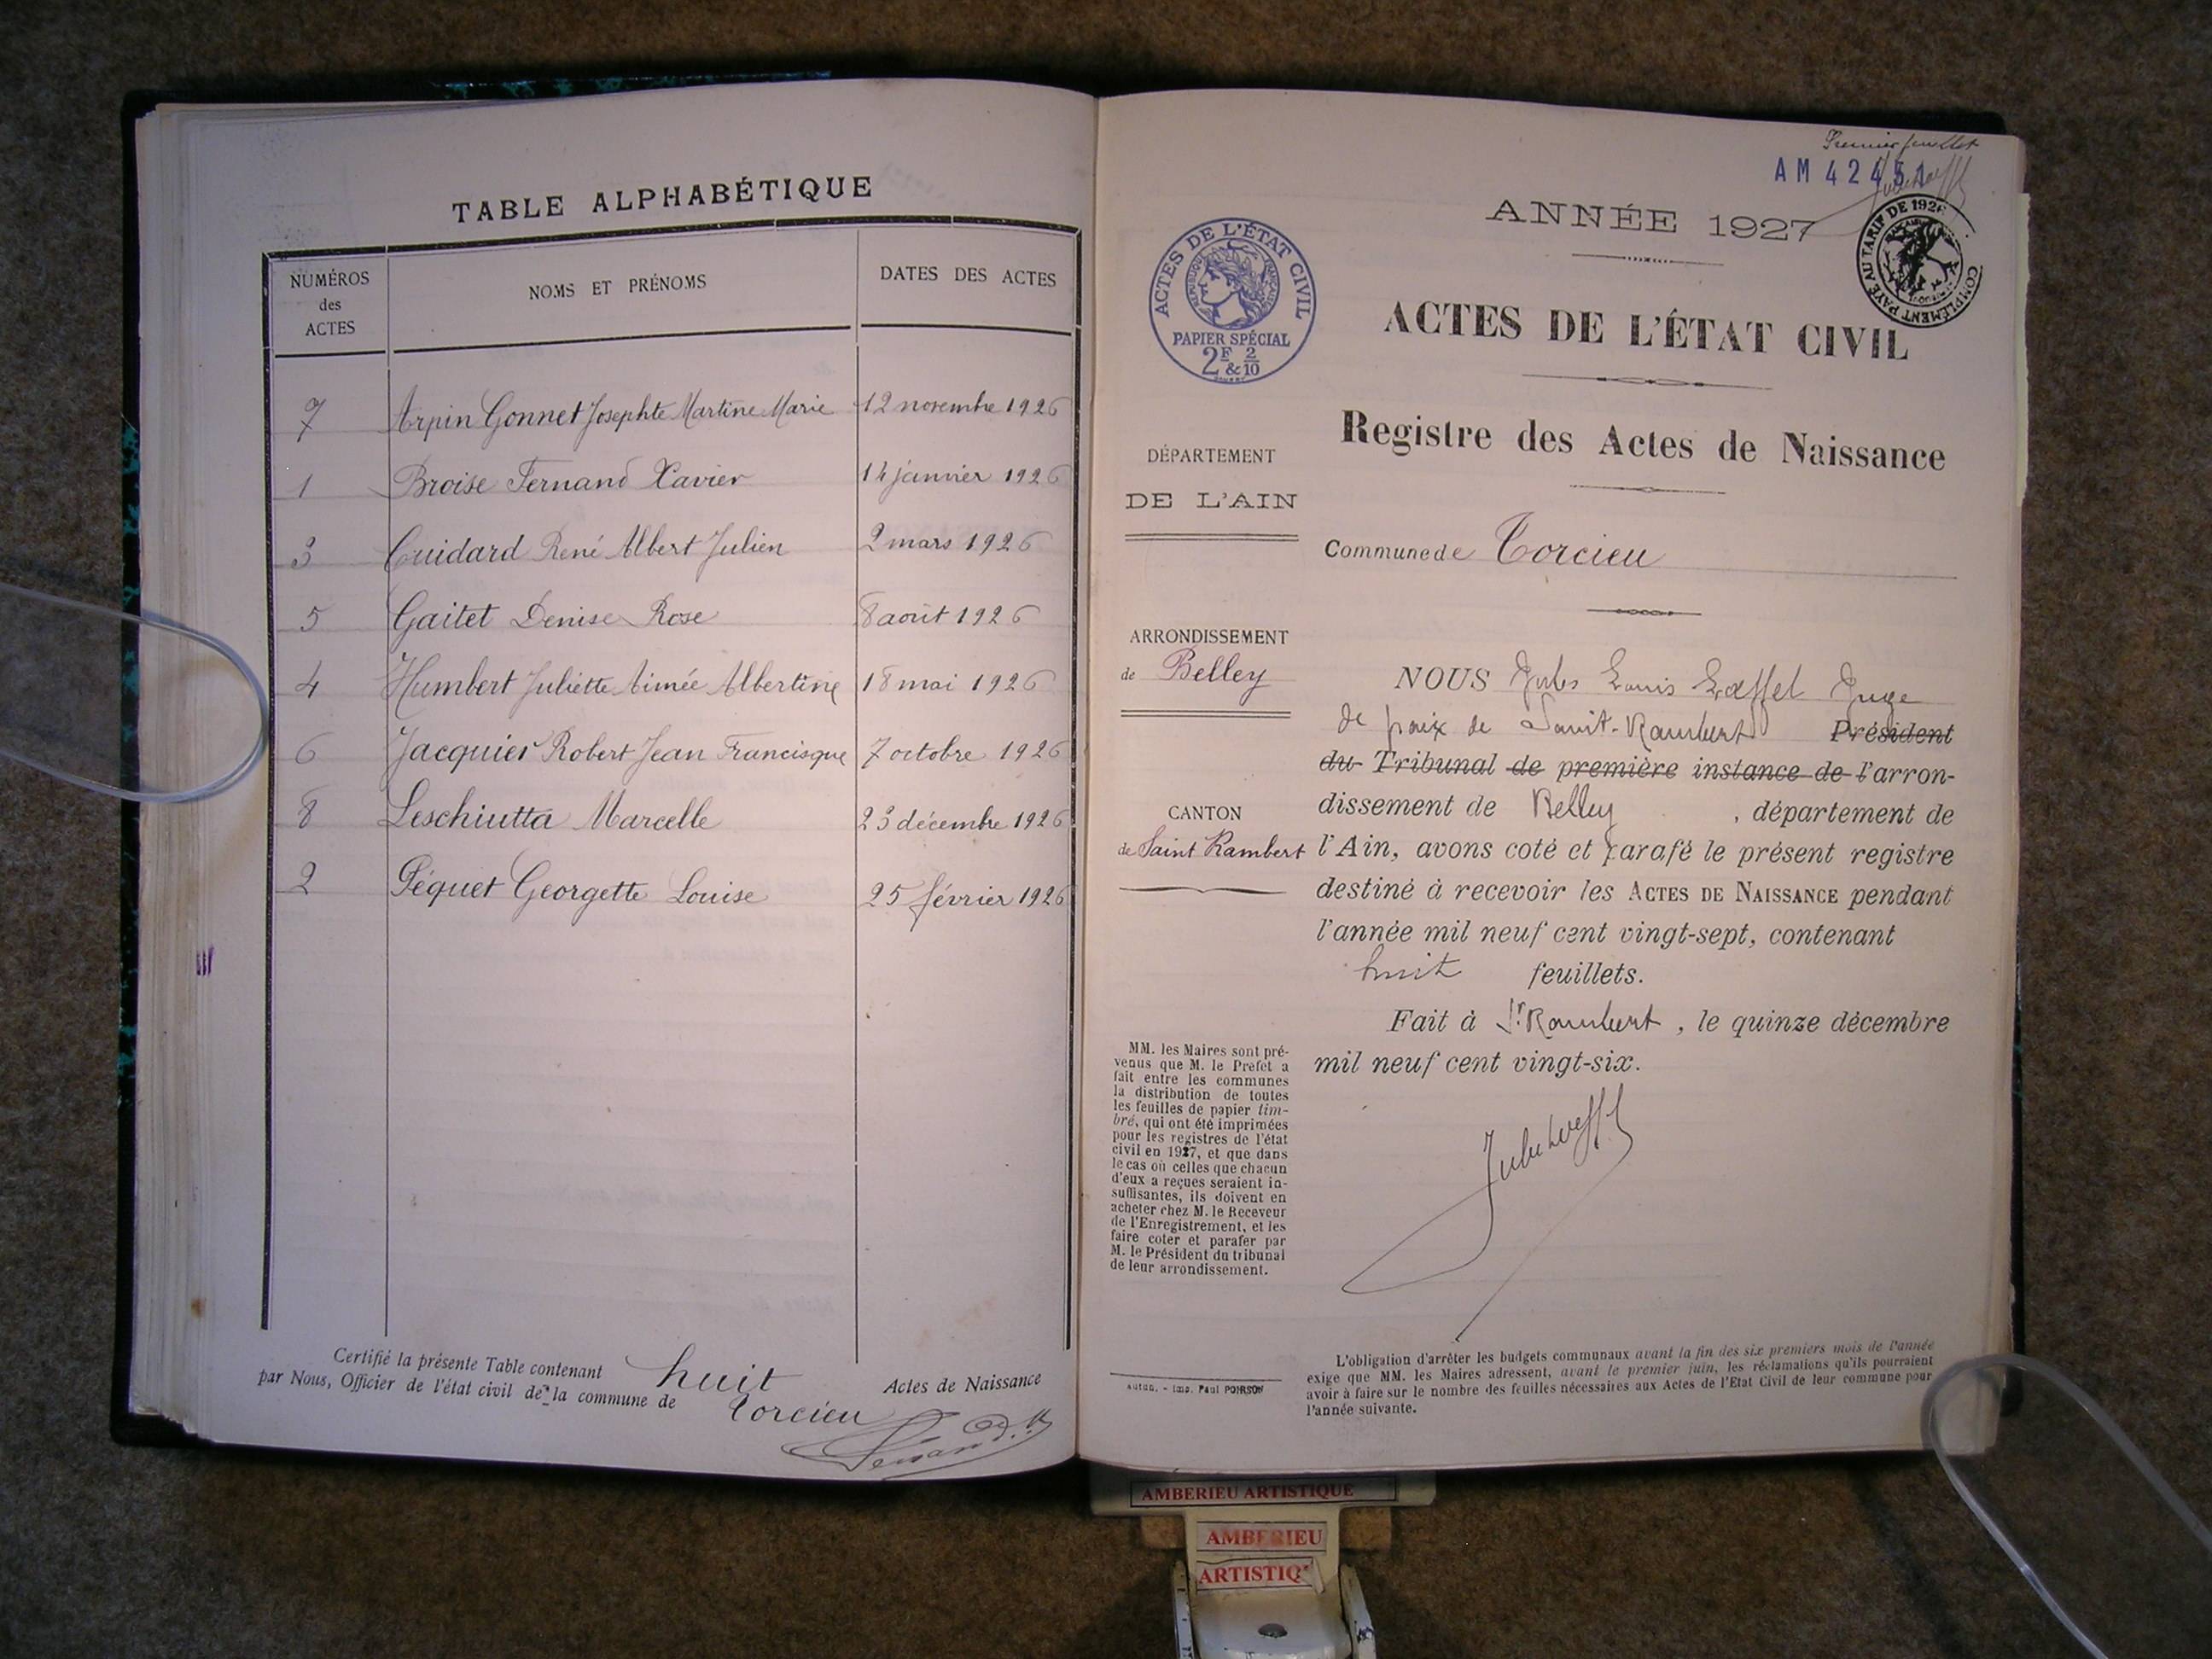 TABLE ALPHABÉTIQUE
NUMÉROS des ACTES
NOMS ET PRÉNOMS
DATES DES ACTES
7 Arpin Gonnet Josephte Martine Marie 12 novembre 1926
1 Broise Fernand Xavier 14 janvier 1926
3 Cuidard René Albert Julien 2 mars 1926
5 Gaitet Denise Rose 8 août 1926
4 Humbert Juliette Aimée Albertine 18 mai 1926
6 Jacquier Robert Jean Francisque 7 octobre 1926
8 Leschiutta Marcelle 23 décembre 1926
2 Péquet Georgette Louise 25 février 1926
Certifié la présente Table contenant huit Actes de Naissance
par Nous, Officier de l'état civil de la commune de Torcieu
Premier feuillet
AM 42451
ANNÉE 1927
ACTES DE L'ÉTAT CIVIL
RÉPUBLIQUE FRANÇAISE
PAPIER SPÉCIAL
2F & 2/10
COMPLÉMENT PAYÉ AU TARIF DE 1926
ACTES DE L'ÉTAT CIVIL
Registre des Actes de Naissance
DÉPARTEMENT
DE L'AIN
Commune de Torcieu
ARRONDISSEMENT
de Belley
CANTON
de Saint Rambert
NOUS Jules Louis Juge
de paix de Saint-Rambert Président
du Tribunal de première instance de l'arron-
dissement de Belley, département de
l'Ain, avons coté et parafé le présent registre
destiné à recevoir les ACTES DE NAISSANCE pendant
l'année mil neuf cent vingt-sept, contenant
huit feuillets.
Fait à St Rambert, le quinze décembre
mil neuf cent vingt-six.
MM. les Maires sont pré-
venus que M. le Prefet a
fait entre les communes
la distribution de toutes
les feuilles de papier tim-
bré, qui ont été imprimées
pour les registres de l'état
civil en 1927, et que dans
le cas où celles que chacun
d'eux a reçues seraient in-
suffisantes, ils doivent en
acheter chez M. le Receveur
de l'Enregistrement, et les
faire coter et parafer par
M. le Président du tribunal
de leur arrondissement.
Autun. - Imp. Paul POIRSON
L'obligation d'arrêter les budgets communaux avant la fin des six premiers mois de l'année
exige que MM. les Maires adressent, avant le premier juin, les réclamations qu'ils pourraient
avoir à faire sur le nombre des feuilles nécessaires aux Actes de l'Etat Civil de leur commune pour
l'année suivante.
AMBERIEU ARTISTIQUE
AMBERIEU
ARTISTIQ